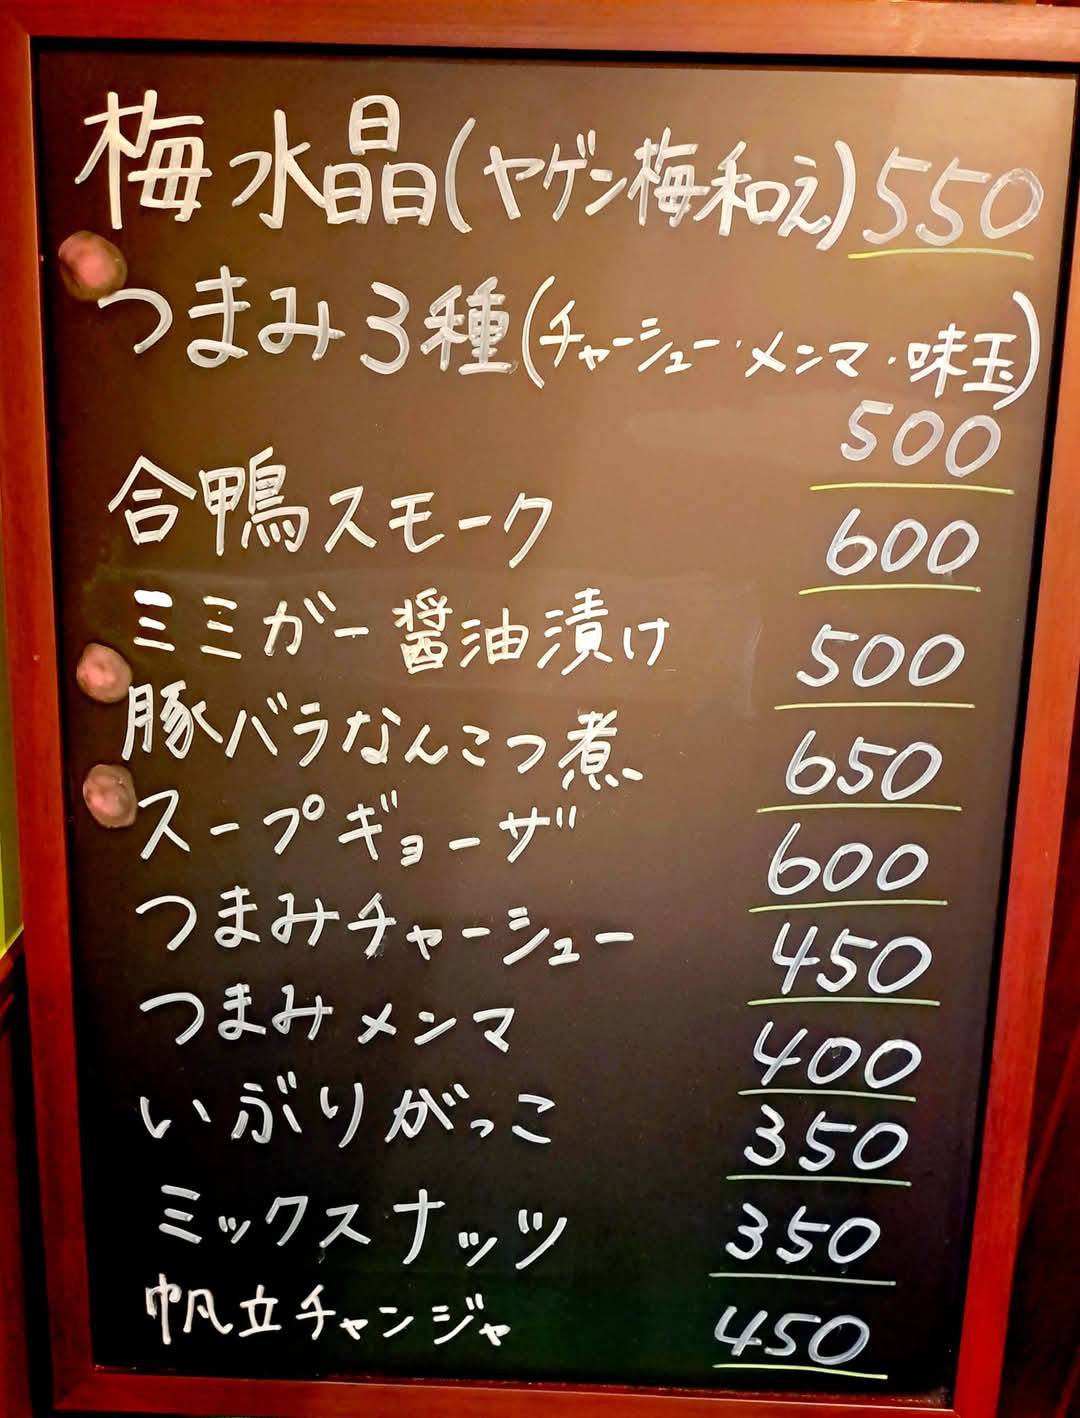 梅水晶(ヤゲン梅和え) 550
つまみ3種(チャーシュー・メンマ・味玉)
500
合鴨スモーク 600
ミミガー醤油漬け 500
豚バラなんこつ煮 650
スープギョーザ 600
つまみチャーシュー 450
つまみメンマ 400
いぶりがっこ 350
ミックスナッツ 350
帆立チャンジャ 450